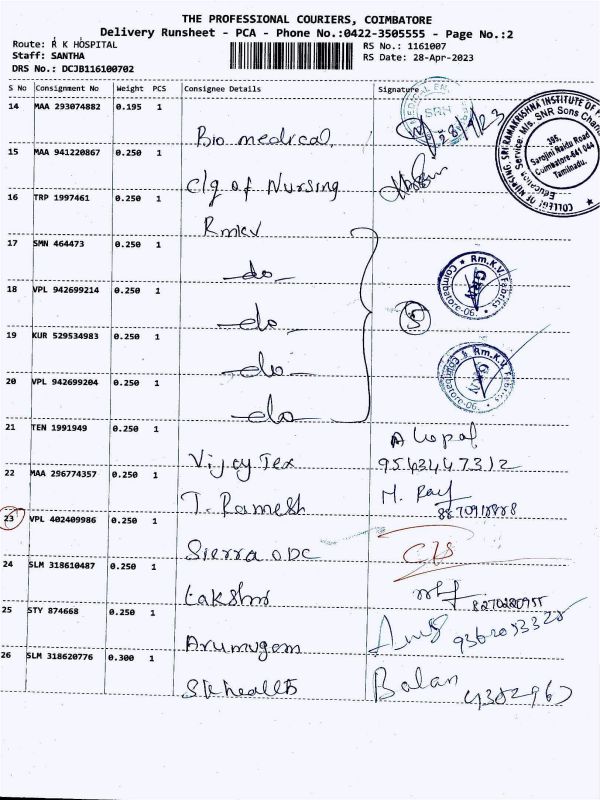 THE PROFESSIONAL COURIERS, COIMBATORE
Delivery Runsheet - PCA - Phone No.:0422-3505555 - Page No.:2
Route: R K HOSPITAL
RS No.: 1161007
Staff: SANTHA
RS Date: 28-Apr-2023
DRS No.: DCJB116100702
S No Consignment No Weight PCS Consignee Details Signature
14 MAA 293074882 0.195 1
Bio medical 28/4/23
15 MAA 941220867 0.250 1
Clg of Nursing
16 TRP 1997461 0.250 1
Rmkv
17 SMN 464473 0.250 1
-do-
18 VPL 942699214 0.250 1
-do- 5
19 KUR 529534983 0.250 1
-do-
20 VPL 942699204 0.250 1
-do-
21 TEN 1991949 0.250 1
Vijay Tex 9543447312
22 MAA 296774357 0.250 1
T. Ramesh M. Raj
23 VPL 402409986 0.250 1
Sierra ODC
24 SLM 318610487 0.250 1
Lakshmi
25 STY 874668 0.250 1
Arumugam
26 SLM 318620776 0.300 1
SK health Balan
COLLEGE OF NURSING, SRI RAMAKRISHNA INSTITUTE OF
Education Service: M/s. SNR Sons
395,
Sarojini Naidu Road
Coimbatore-641 044
Tamilnadu.
Rm.K.V. Fabrics
Coimbatore-90.
GRN
Rm.K.V. Fabrics
Coimbatore-90.
GRN